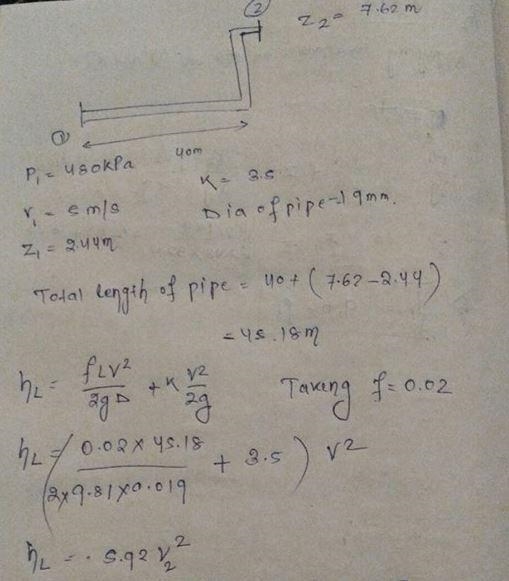 ②
Z₂ = 7.62 m
①
40m
P₁ = 450kPa
K = 3.5
V₁ = 5 m/s
Dia of pipe = 19mm.
Z₁ = 2.44m
Total length of pipe = 40 + (7.62 - 2.44)
= 45.18m
hL = fLV²/2gD + K V²/2g
Taking f = 0.02
hL = (0.02 × 45.18/2×9.81×0.019 + 3.5) V²
hL = 5.92 V₂²